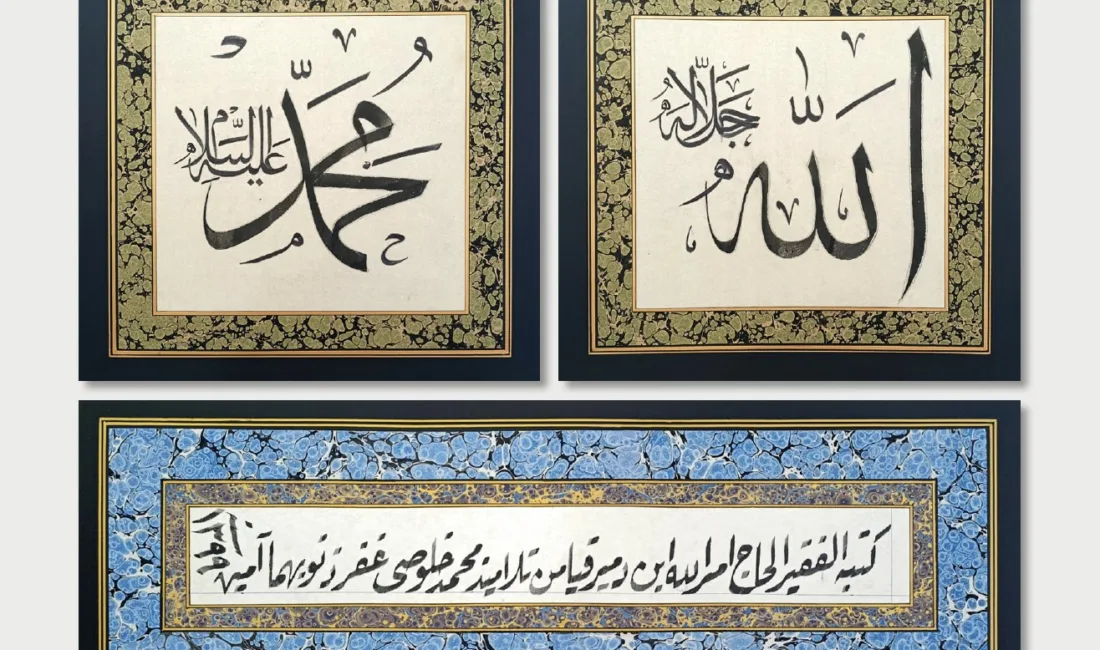 الله
جل جلاله
محمد
عليه السلام
كتبه الفقير الحاج امر الله ابن دمير قيا من تلاميذ محمد خلوصي غفر ذنوبهما آمين